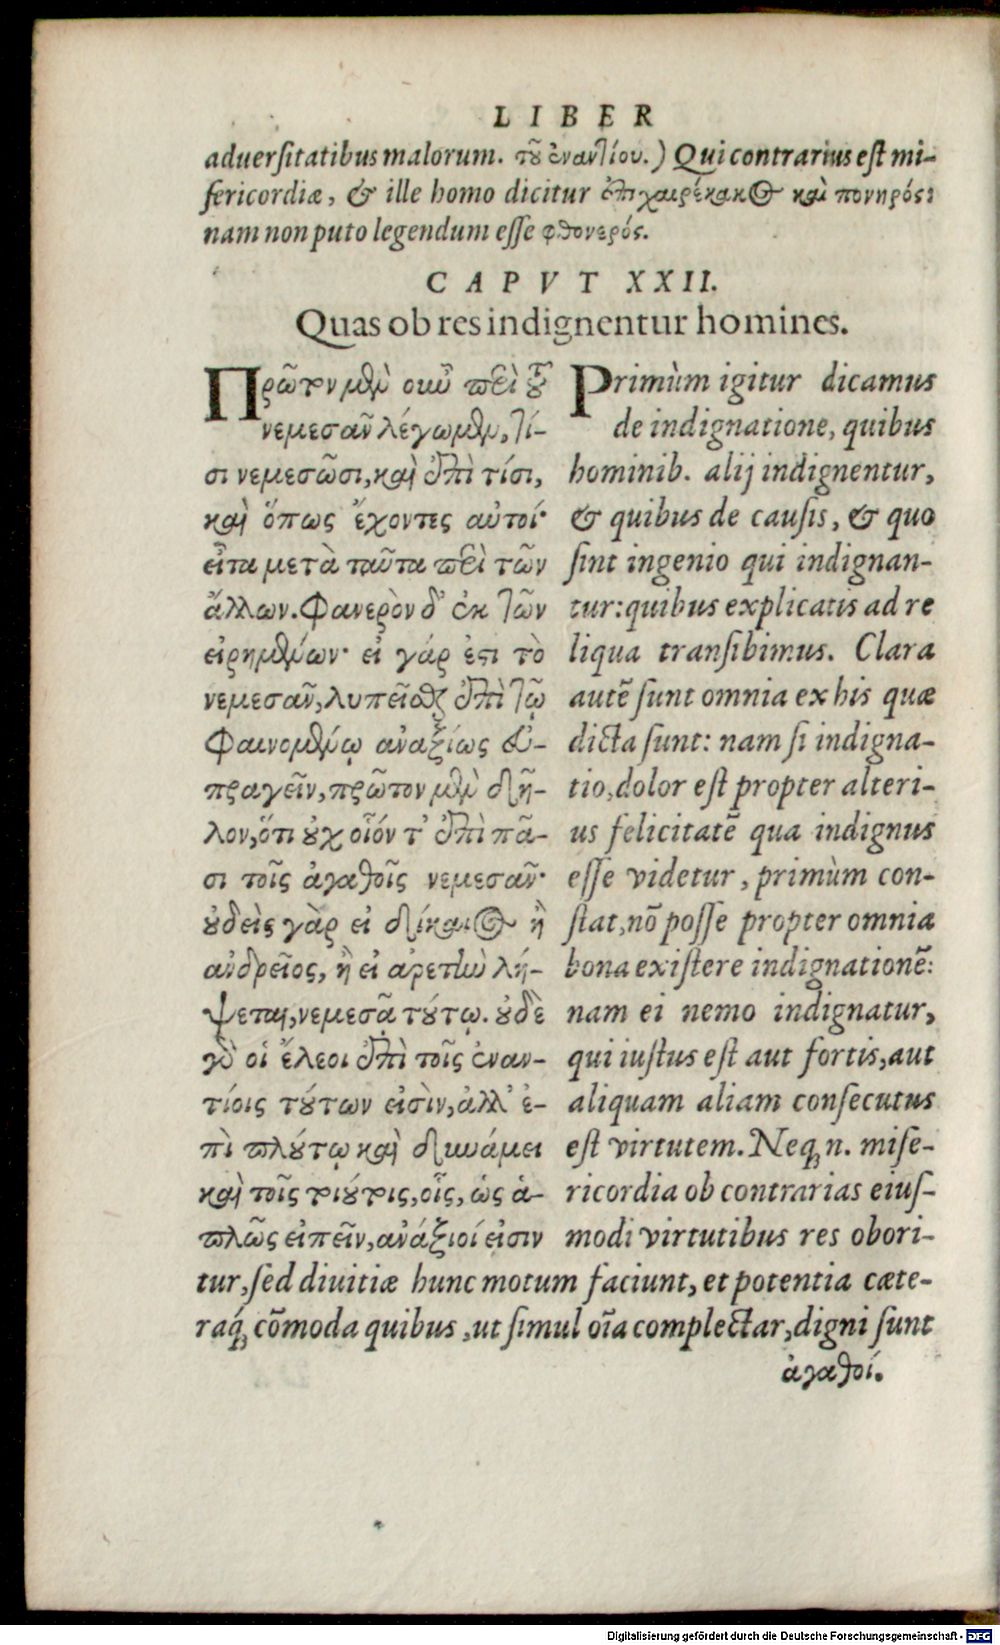 LIBER
aduerſitatibus malorum. τοῦ ἐναντίου.) Qui contrarius eſt mi-
ſericordiæ, & ille homo dicitur ἐπιχαιρέκακος καὶ πονηρός:
nam non puto legendum eſſe φθονερός.
CAPVT XXII.
Quas ob res indignentur homines.
Πρῶτον μὲν οὖν περὶ τοῦ
νεμεσᾶν λέγωμεν, τί-
σι νεμεσῶσι, καὶ ἐπὶ τίσι,
καὶ ὅπως ἔχοντες αὐτοί·
εἶτα μετὰ ταῦτα περὶ τῶν
ἄλλων. Φανερὸν δ' ἐκ τῶν
εἰρημένων· εἰ γάρ ἐστι τὸ
νεμεσᾶν, λυπεῖσθαι ἐπὶ τῷ
φαινομένῳ ἀναξίως εὐ-
πραγεῖν, πρῶτον μὲν δῆ-
λον, ὅτι οὐχ οἷόν τ' ἐπὶ πᾶ-
σι τοῖς ἀγαθοῖς νεμεσᾶν·
οὐδεὶς γὰρ εἰ δίκαιος ἢ
ἀνδρεῖος, ἢ εἰ ἀρετὴν λή-
ψεται, νεμεσᾷ τούτῳ. οὐδὲ
γὰρ οἱ ἔλεοι ἐπὶ τοῖς ἐναν-
τίοις τούτων εἰσὶν, ἀλλ' ἐ-
πὶ πλούτῳ καὶ δυνάμει
καὶ τοῖς τοιούτοις, οἷς, ὡς ἁ-
πλῶς εἰπεῖν, ἀνάξιοί εἰσιν
Primùm igitur dicamus
de indignatione, quibus
hominib. alij indignentur,
& quibus de cauſis, & quo
ſint ingenio qui indignan-
tur: quibus explicatis ad re
liqua tranſibimus. Clara
autē ſunt omnia ex his quæ
dicta ſunt: nam ſi indigna-
tio, dolor eſt propter alteri-
us felicitatē qua indignus
eſſe videtur, primùm con-
ſtat, nō poſſe propter omnia
bona exiſtere indignationē:
nam ei nemo indignatur,
qui iuſtus eſt aut fortis, aut
aliquam aliam conſecutus
eſt virtutem. Neq; n. miſe-
ricordia ob contrarias eiuſ-
modi virtutibus res obori-
tur, ſed diuitiæ hunc motum faciunt, et potentia cæte-
raq́; cōmoda quibus, ut ſimul oīa complectar, digni ſunt
ἀγαθοί.
Digitalisierung gefördert durch die Deutsche Forschungsgemeinschaft - DFG